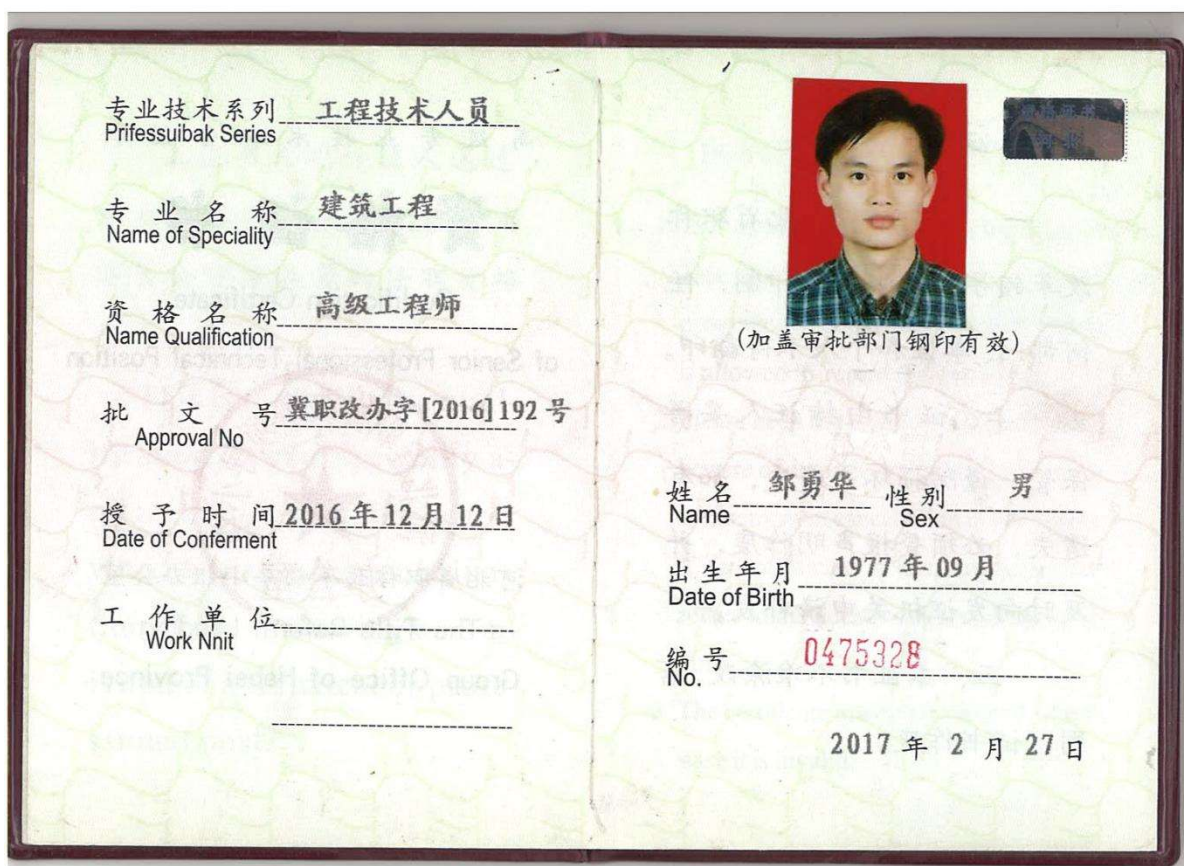 专业技术系列 工程技术人员
Prifessuibak Series
专业名称 建筑工程
Name of Speciality
资格名称 高级工程师
Name Qualification
批文号 冀职改办字[2016]192号
Approval No
授予时间 2016年12月12日
Date of Conferment
工作单位
Work Nnit
(加盖审批部门钢印有效)
姓名 邹勇华 性别 男
Name Sex
出生年月 1977年09月
Date of Birth
编号 0475328
No.
2017年2月27日